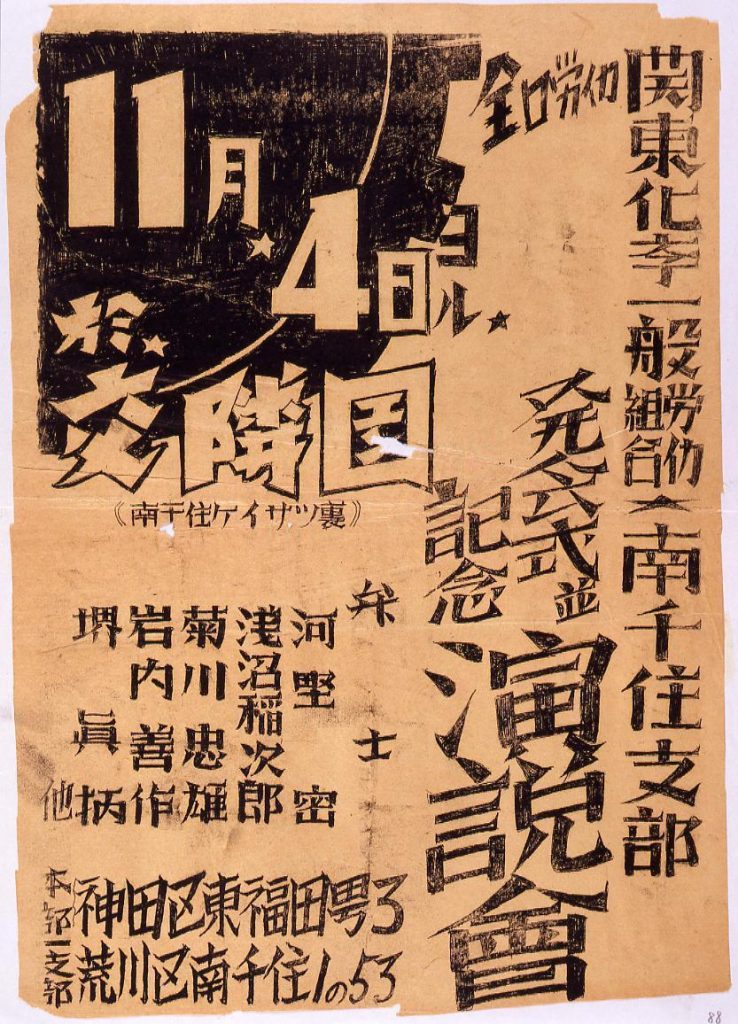 全日労仂
関東化学一般労仂組合 南千住支部
発会式並
記念
演説會
11月4日ヨル
於
交隣園
《南千住ケイサツ裏》
弁士
河野密
浅沼稲次郎
菊川忠雄
岩内善作
堺眞柄
他
本部 神田区東福田町3
支部 荒川区南千住1の53
88